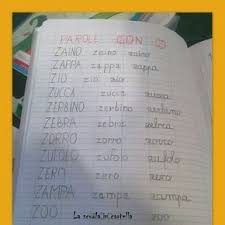 PAROLE CON Z
ZAINO zaino zaino
ZAPPA zappa zappa
ZIO zio zio
ZUCCA zucca zucca
ZERBINO zerbino zerbino
ZEBRA zebra zebra
ZORRO zorro zorro
ZUFOLO zufolo zufolo
ZERO zero zero
ZAMPA zampa zampa
ZOO zoo zoo